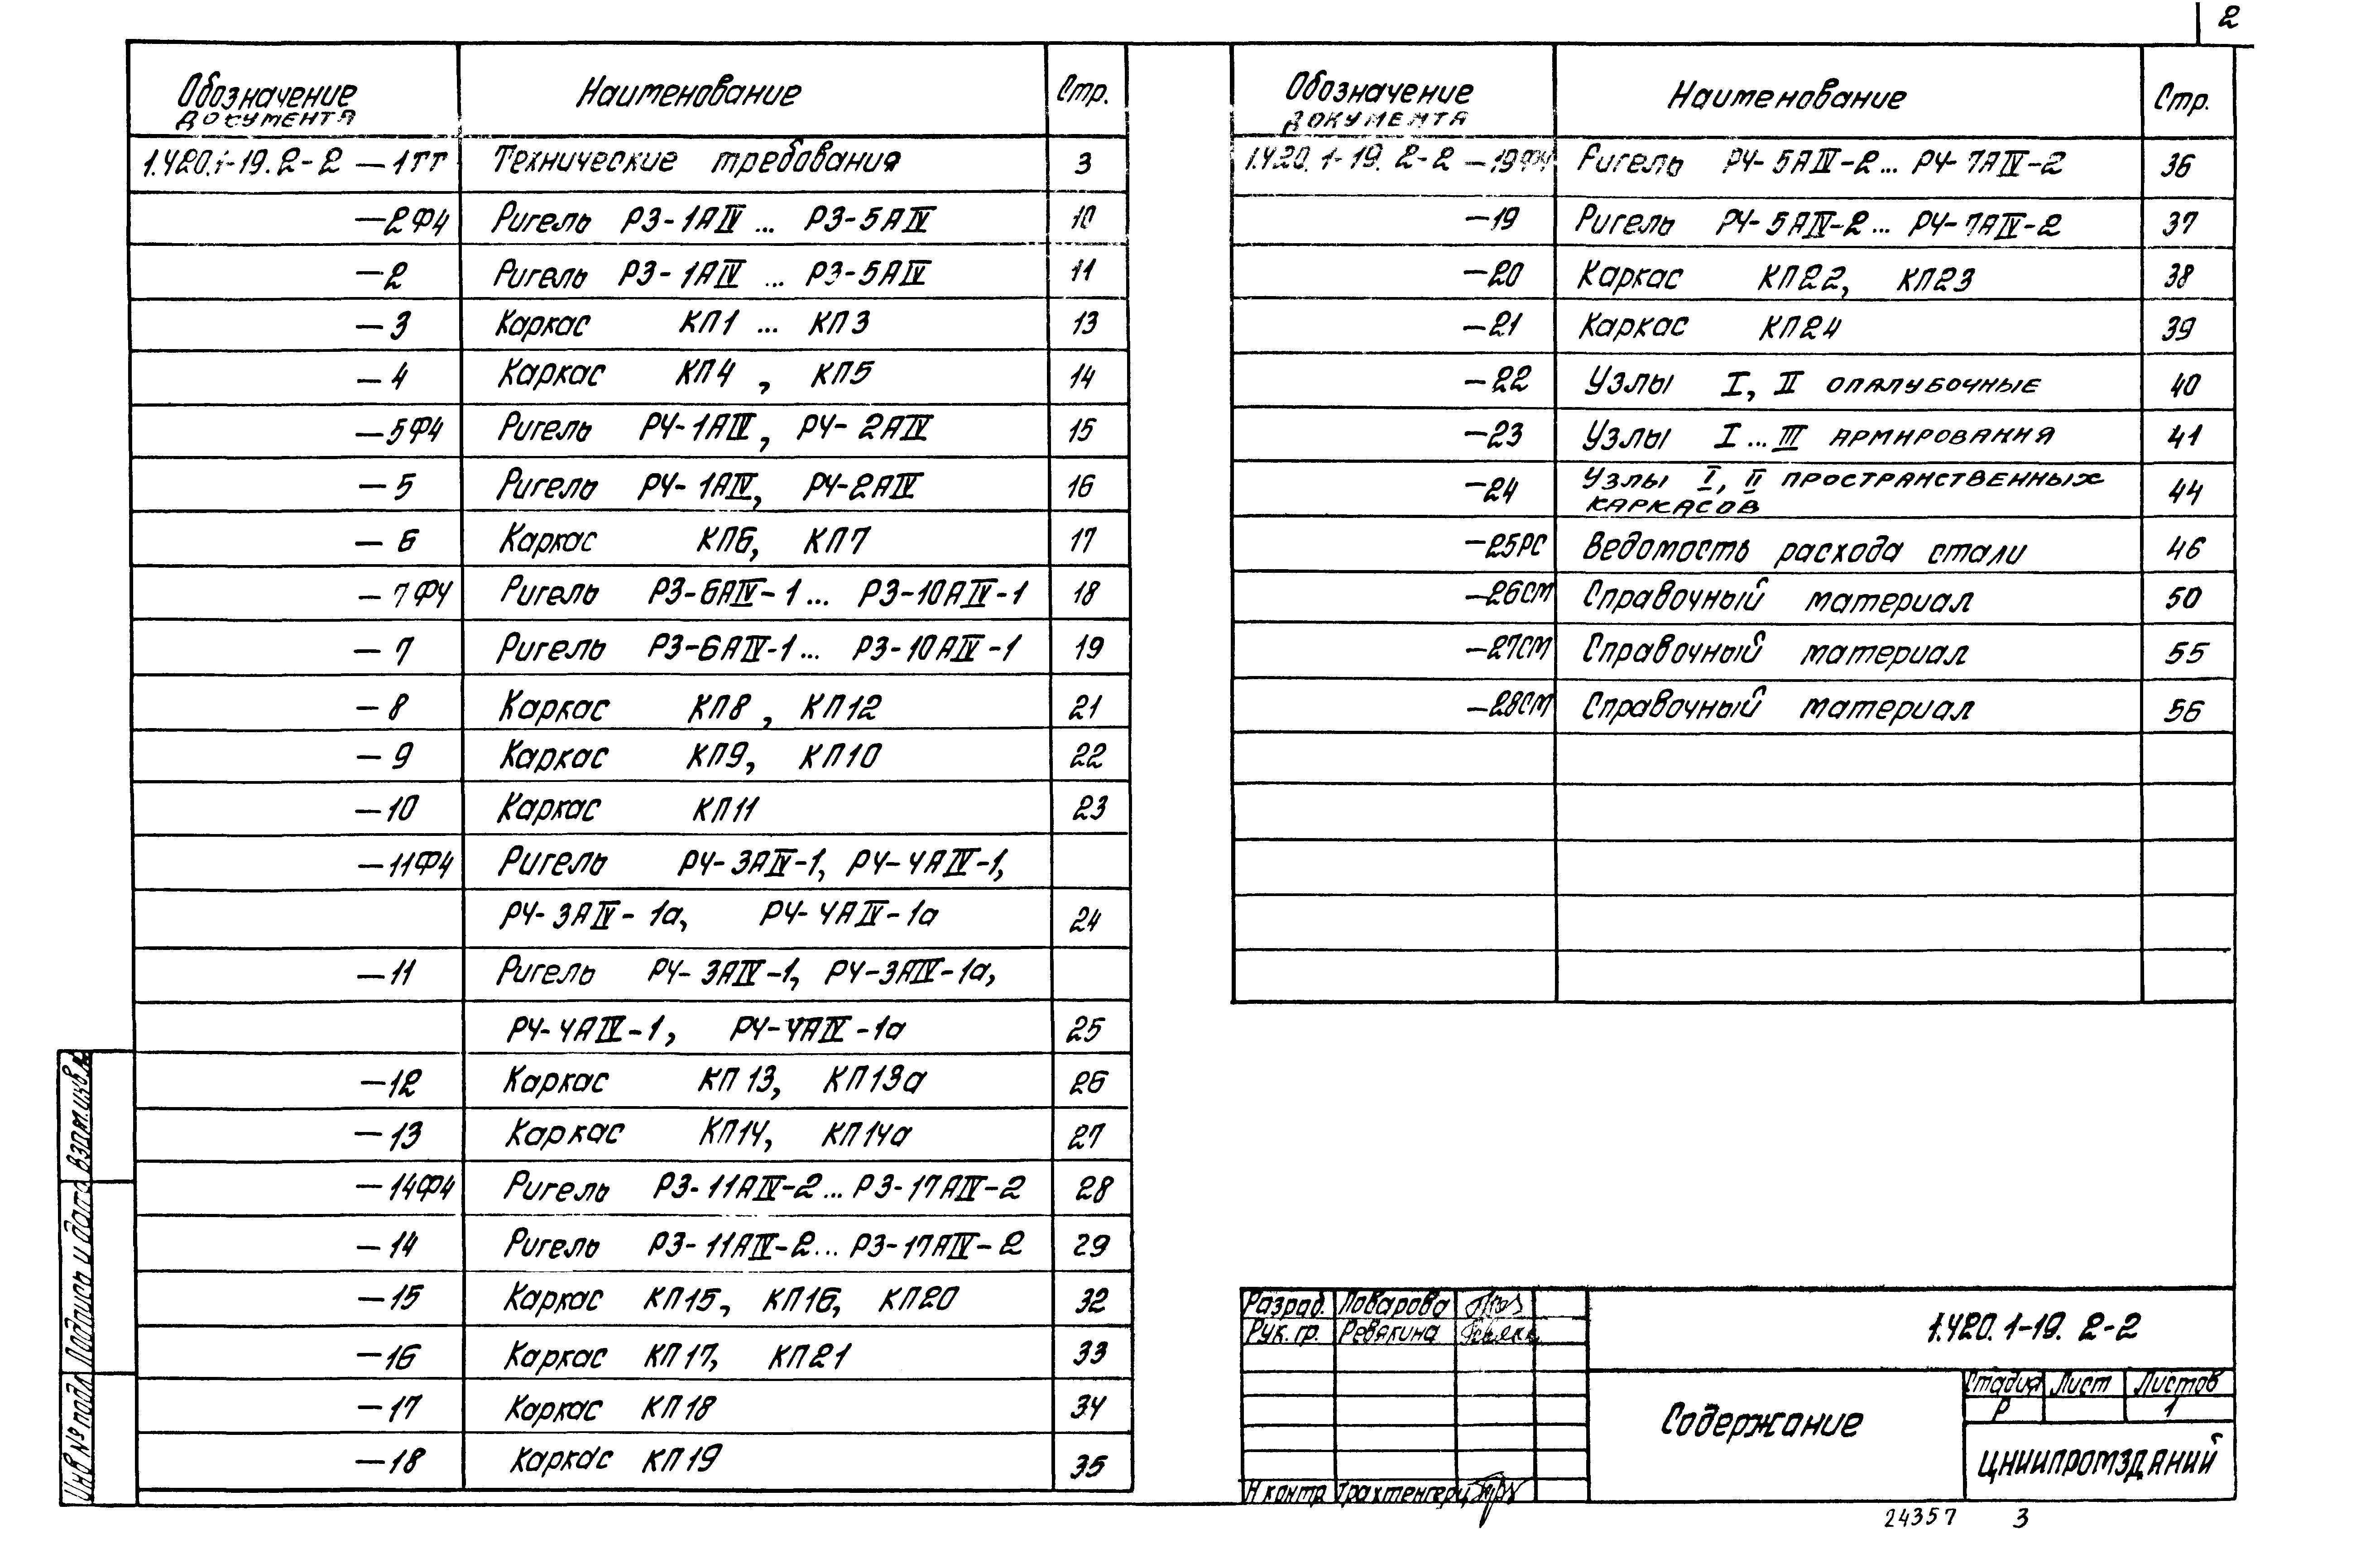 2
Обозначение документа Наименование Стр.
1.420.1-19.2-2 —1ТТ Технические требования 3
—2Ф4 Ригель Р3-1АIV ... Р3-5АIV 10
—2 Ригель Р3-1АIV ... Р3-5АIV 11
—3 Каркас КП1 ... КП3 13
—4 Каркас КП4 , КП5 14
—5Ф4 Ригель Р4-1АIV, Р4-2АIV 15
—5 Ригель Р4-1АIV, Р4-2АIV 16
—6 Каркас КП6, КП7 17
—7Ф4 Ригель Р3-6АIV-1... Р3-10АIV-1 18
—7 Ригель Р3-6АIV-1... Р3-10АIV-1 19
—8 Каркас КП8 , КП12 21
—9 Каркас КП9, КП10 22
—10 Каркас КП11 23
—11Ф4 Ригель Р4-3АIV-1, Р4-4АIV-1,
Р4-3АIV-1а, Р4-4АIV-1а 24
—11 Ригель Р4-3АIV-1, Р4-3АIV-1а,
Р4-4АIV-1, Р4-4АIV-1а 25
—12 Каркас КП13, КП13а 26
—13 Каркас КП14, КП14а 27
—14Ф4 Ригель Р3-11АIV-2... Р3-17АIV-2 28
—14 Ригель Р3-11АIV-2... Р3-17АIV-2 29
—15 Каркас КП15, КП16, КП20 32
—16 Каркас КП17, КП21 33
—17 Каркас КП18 34
—18 Каркас КП19 35
Обозначение документа Наименование Стр.
1.420.1-19.2-2 —19Ф4 Ригель Р4-5АIV-2... Р4-7АIV-2 36
—19 Ригель Р4-5АIV-2... Р4-7АIV-2 37
—20 Каркас КП22, КП23 38
—21 Каркас КП24 39
—22 Узлы I, II опалубочные 40
—23 Узлы I...III армирования 41
—24 Узлы I, II пространственных
каркасов 44
—25РС Ведомость расхода стали 46
—26СМ Справочный материал 50
—27СМ Справочный материал 55
—28СМ Справочный материал 56
Взам.инв.№
Подпись и дата
Инв № подл
Разраб. Поварова
Рук.гр. Ревякина
Н контр Трахтенгерц
1.420.1-19.2-2
Содержание
Стадия Лист Листов
Р 1
ЦНИИПРОМЗДАНИЙ
24357 3